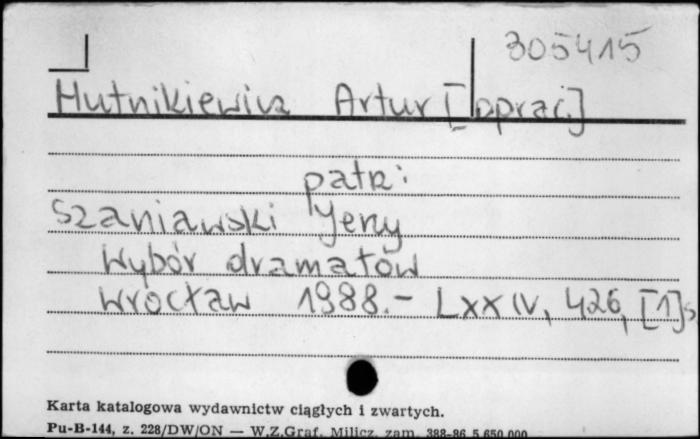 305415
Hutnikiewicz Artur [oprac.]
patrz:
Szaniawski Jerzy
Wybór dramatów
Wrocław 1988.- LXXIV, 426, [1]s
Karta katalogowa wydawnictw ciągłych i zwartych.
Pu-B-144, z. 228/DW/ON — W.Z.Graf. Milicz, zam. 388-86 5.650.000